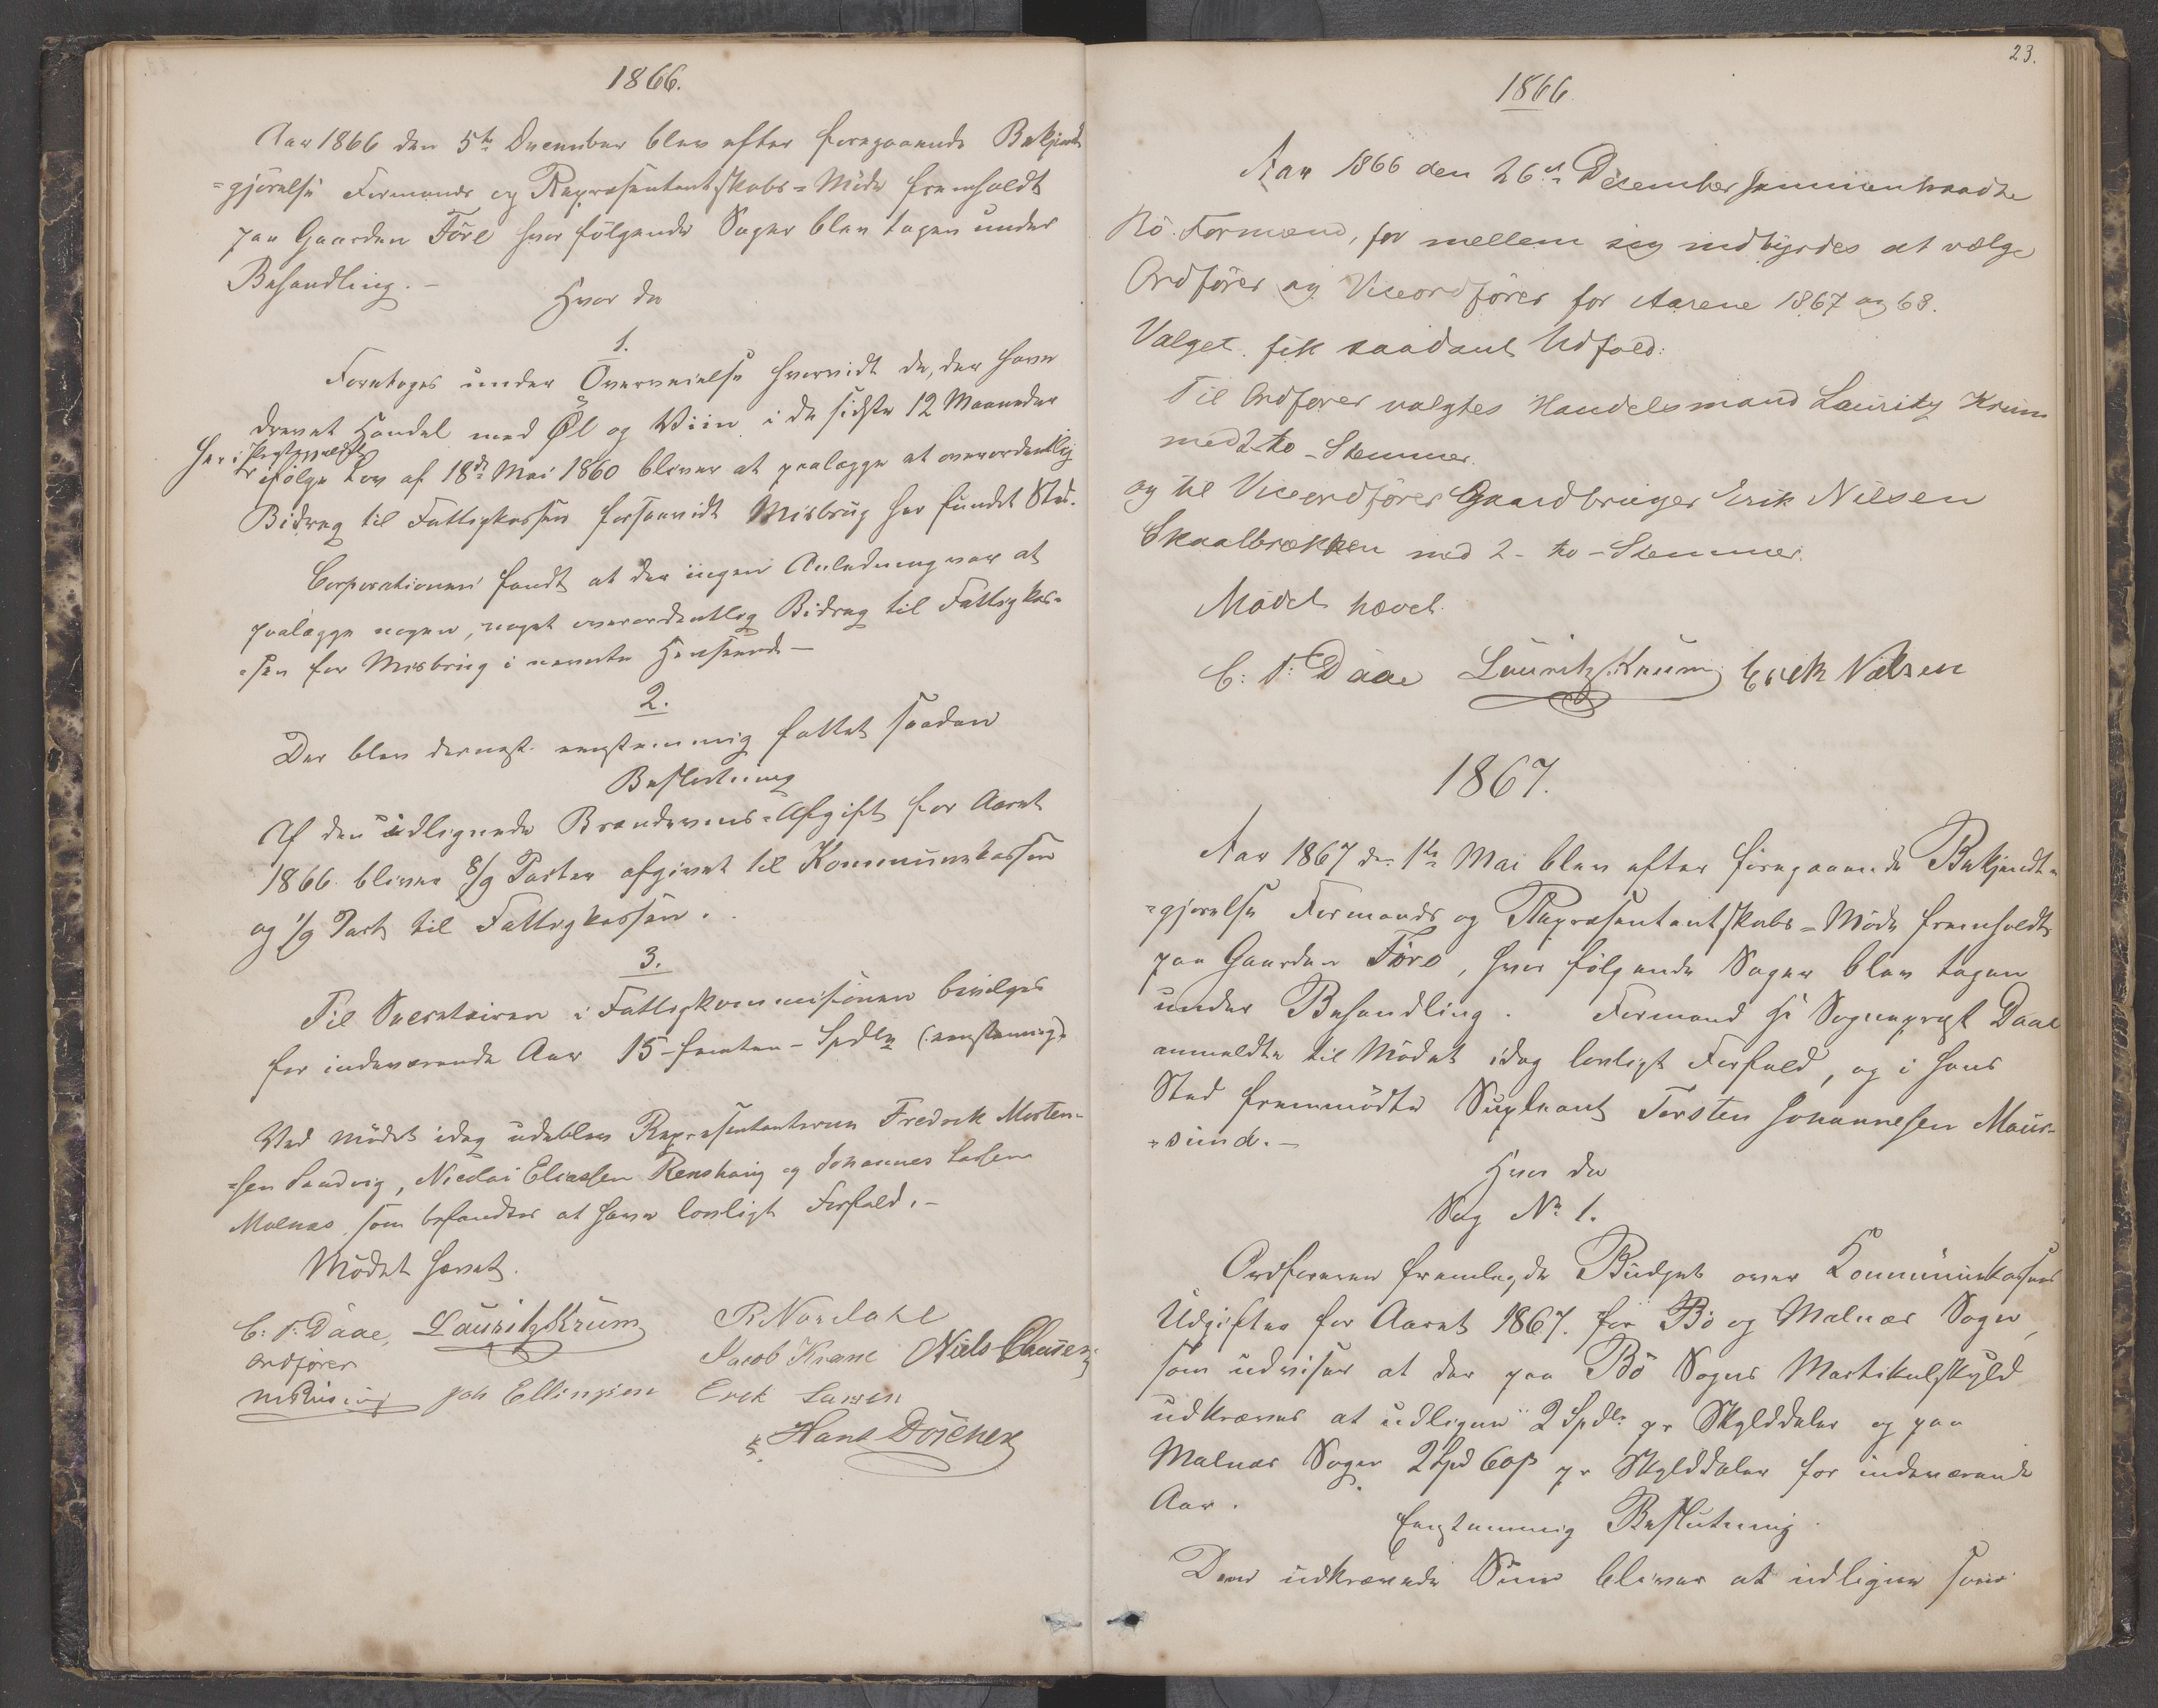 1866.
Aar 1866 den 5te December blev efter foregaaende Bekjendt
=gjörelse Formands og Repræsentantskabs=Möde fremholdt
paa Gaarden Före hvor fölgende Sager blev tagen under
Behandling.-
Hvor da
1.
Foretoges under Overveielse hvorvidt de, der have
drevet Handel med Öl og Viin i de sidste 12 Maaneder
her i Prestegjeldet
ifölge Lov af 18de Mai 1860 bliver at paalægge et overordentlig
Bidrag til Fattigkassen forsaavidt Misbrug har fundet Sted.
Corporationen fandt at der ingen Anledning var at
paalægge nogen, noget overordentlig Bidrag til Fattigkas=
=sen for Misbrug i nevnte Henseende-
2.
Der blev dernæst eenstemmig fattet saadan
Beslutning
Af den udlignede Brændeviins=Afgift for Aaret
1866 bliver 8/9 Parter afgivet til Kommunekassen
og 1/9 Part til Fattigkassen.
3.
Til Secretairen i Fattigkommissionen bevilges
for indeværende Aar 15-femten-Spdlr (:eenstemmig:)
Ved Mödet idag udeblev Repræsentanterne Fredrik Morten=
=sen Sandvig, Nicolai Eliassen Renshaug og Johannes Larsen
Malnæs som befandtes at have lovligt Forfald.-
Mödet hævet.
C: T: Daae, Lauritz Krum R Nordahl
Ordförer Jacob Krane Niels Clausen
Joh Ellingsen Erek Larsen
Hans Döscher
23.
1866
Aar 1866 den 26de Desember sammentraadte
Bö Formænd, for mellem sig indbyrdes at vælge
Ordförer og Viceordförer for Aarene 1867 og 68.
Valget fik saadant Udfald:
Til Ordförer valgtes Handelsmand Lauritz Krum
med 2-to-Stemmer.
og til Viceordförer Gaardbruger Erik Nilsen
Skaalbrækken med 2-to-Stemmer.
Mödet hævet.
C: T: Daae Lauritz Krum Erek Nilsen
1867.
Aar 1867 den 1te Mai blev efter foregaaende Bekjendt=
=gjörelse Formands og Repræsentantskabs=Möde fremholdt
paa Gaarden Före, hvor fölgende Sager blev tagen
under Behandling. Formand Hr Sognepræst Daae
anmeldte til Mödet idag lovligt Forfald, og i hans
Sted fremmödte Supleant Torsten Johannesen Maur=
=sund.-
Hvor da
Sag No 1.
Ordföreren fremlagde Budget over Kommunekassens
Udgifter for Aaret 1867. for Bö og Malnæs Sogne,
som udviser at der paa Bö Sogns Martikulskyld
udkræves at udligne 2 Spdlr pr Skylddaler og paa
Malnæs Sogn 2 Spd 60 s pr Skylddaler for indeværende
Aar.
Eenstemmig Beslutning.
Den udkrævede Sum bliver at udligne som